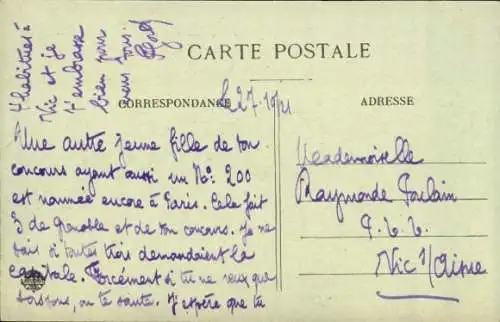 CARTE POSTALE
CORRESPONDANCE
ADRESSE
Le 27.10.21
Une autre jeune fille de ton
concours ayant aussi un N°: 200
est nommée encore à Paris. Cela fait
3 de Grenoble et de ton concours. Je ne
sais si toutes trois demandaient la
capitale. Forcément si tu ne veux que
, on te saute. J'espère que tu
t'habitues à
Vic et je
t'embrasse
bien pour
nous tous.
Mademoiselle
Raymonde Poulain
P.T.T.
Vic s/Aisne